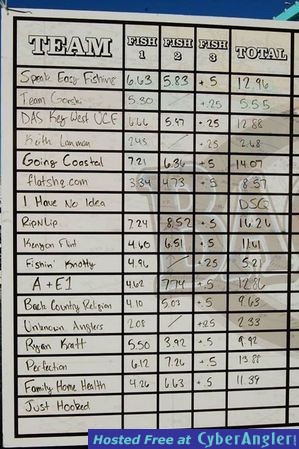 TEAM FISH 1 FISH 2 FISH 3 TOTAL
Speak Easy Fishing 6.63 5.83 +.5 12.96
Team 5.30 / +.25 5.55
DAS Key West UCF 6.66 +.5 12.88
Keith 2.43 / +.25 2.68
Going Coastal 7.21 6.36 +.5 14.07
flatshq.com 3.34 4.73 +.5 8.57
I Have No Idea DSQ
RipNLip 7.24 8.52 +.5 16.26
Kenyon Flint 4.60 6.51 +.5 11.61
Fishin' Knotty 4.96 / +.25 5.21
A + E1 4.62 7.74 +.5 12.86
Back Country Religion 4.10 5.03 +.5 9.63
Unknown Anglers 2.08 / +.25 2.33
Ryan Kraft 5.50 3.92 +.5 9.92
Perfection 6.12 7.26 +.5 13.88
Family Home Health 4.26 6.63 +.5 11.39
Just Hooked
Hosted Free at CyberAngler